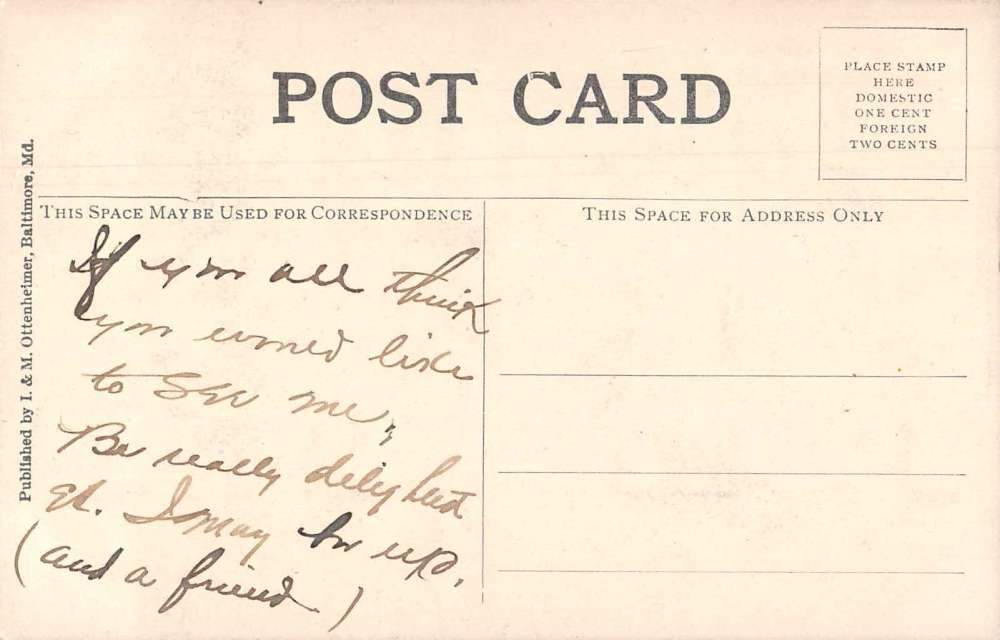 POST CARD
PLACE STAMP
HERE
DOMESTIC
ONE CENT
FOREIGN
TWO CENTS
Published by I. & M. Ottenheimer, Baltimore, Md.
THIS SPACE MAY BE USED FOR CORRESPONDENCE
THIS SPACE FOR ADDRESS ONLY
If you all think
you would like
to see me,
Be really delighted
I may be up.
(and a friend)